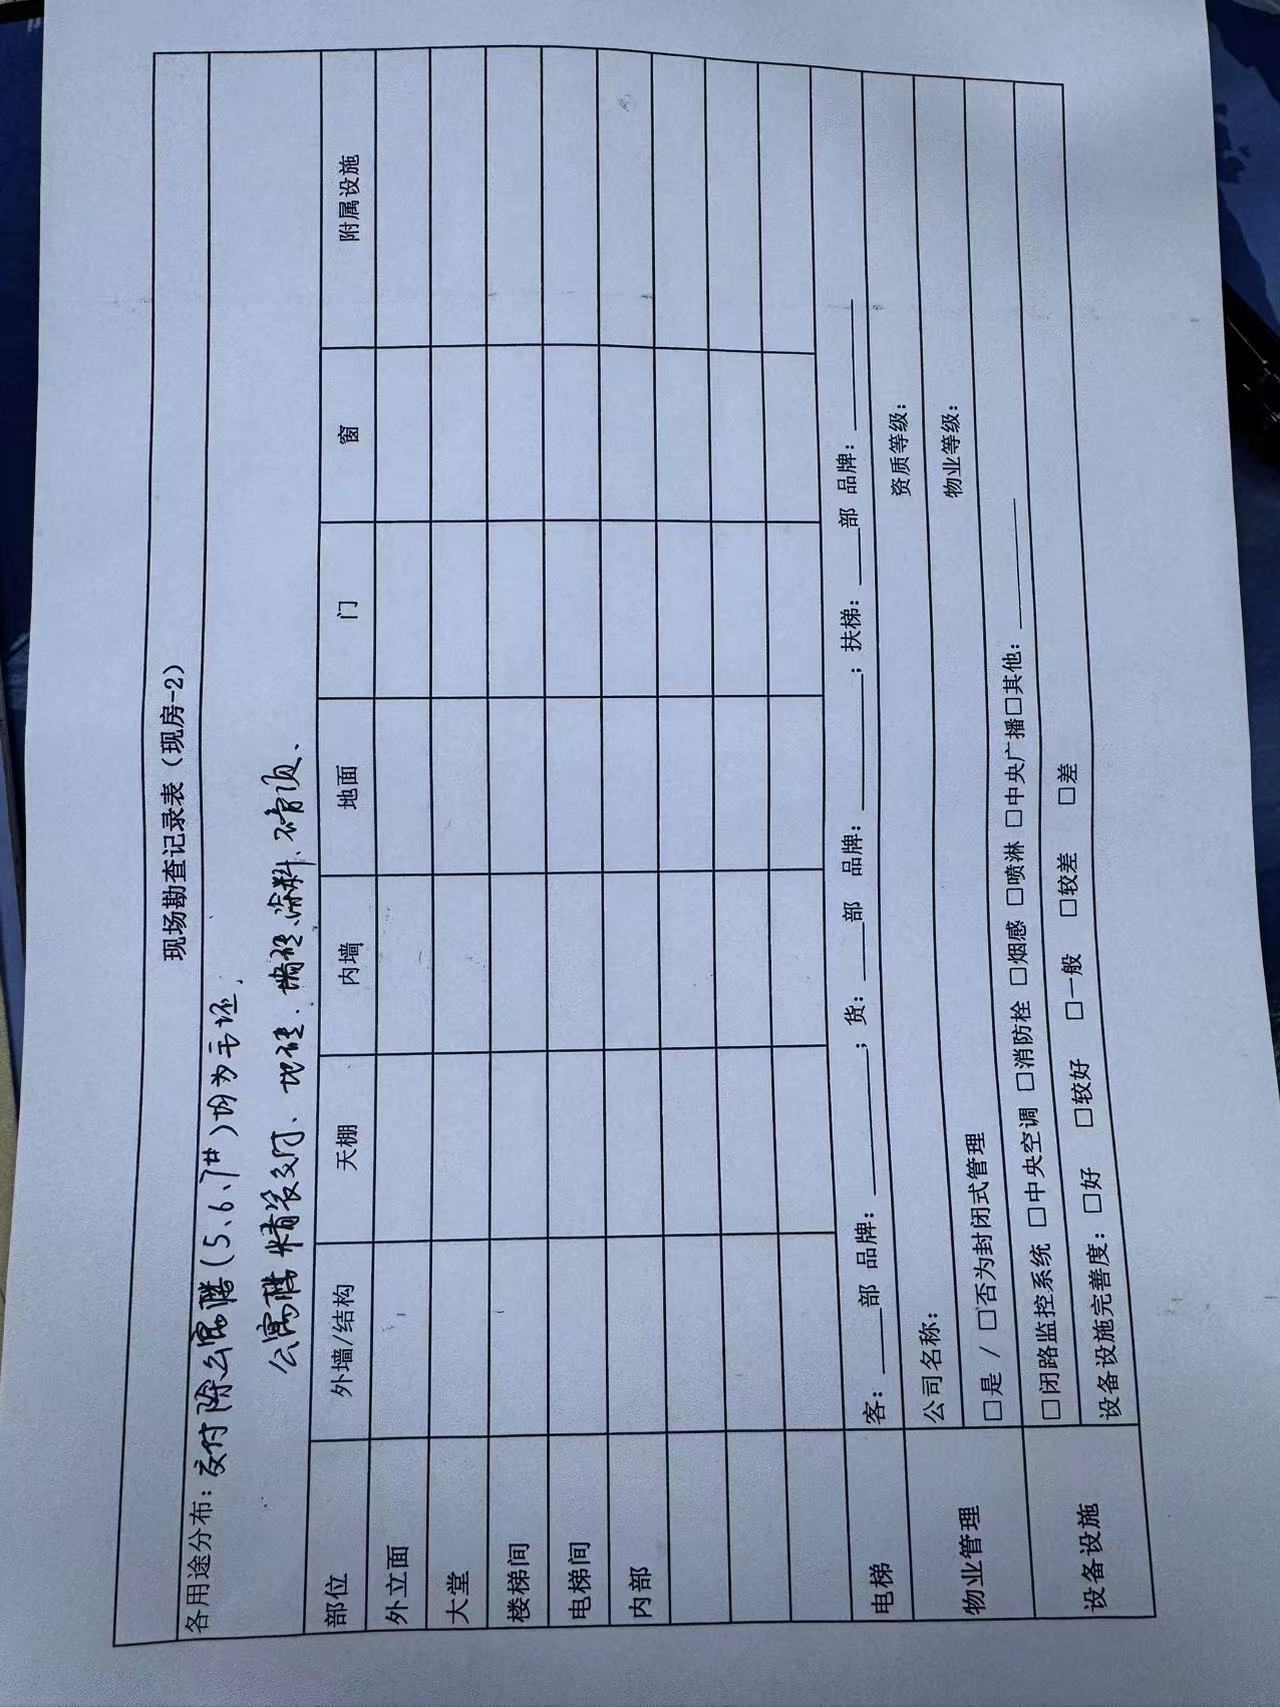 现场勘查记录表（现房-2）
各用途分布：交付除公寓楼（5、6、7#）均为毛坯，
公寓楼精装交付、地砖、墙砖、涂料、不吊顶、
部位 外墙/结构 天棚 内墙 地面 门 窗 附属设施
外立面
大堂
楼梯间
电梯间
内部
电梯 客：____部 品牌：________；货：____部 品牌：________；扶梯：____部 品牌：________
物业管理 公司名称： 资质等级：
□是 / □否为封闭式管理 物业等级：
设备设施 □闭路监控系统 □中央空调 □消防栓 □烟感 □喷淋 □中央广播□其他：________
设备设施完善度：□好 □较好 □一般 □较差 □差